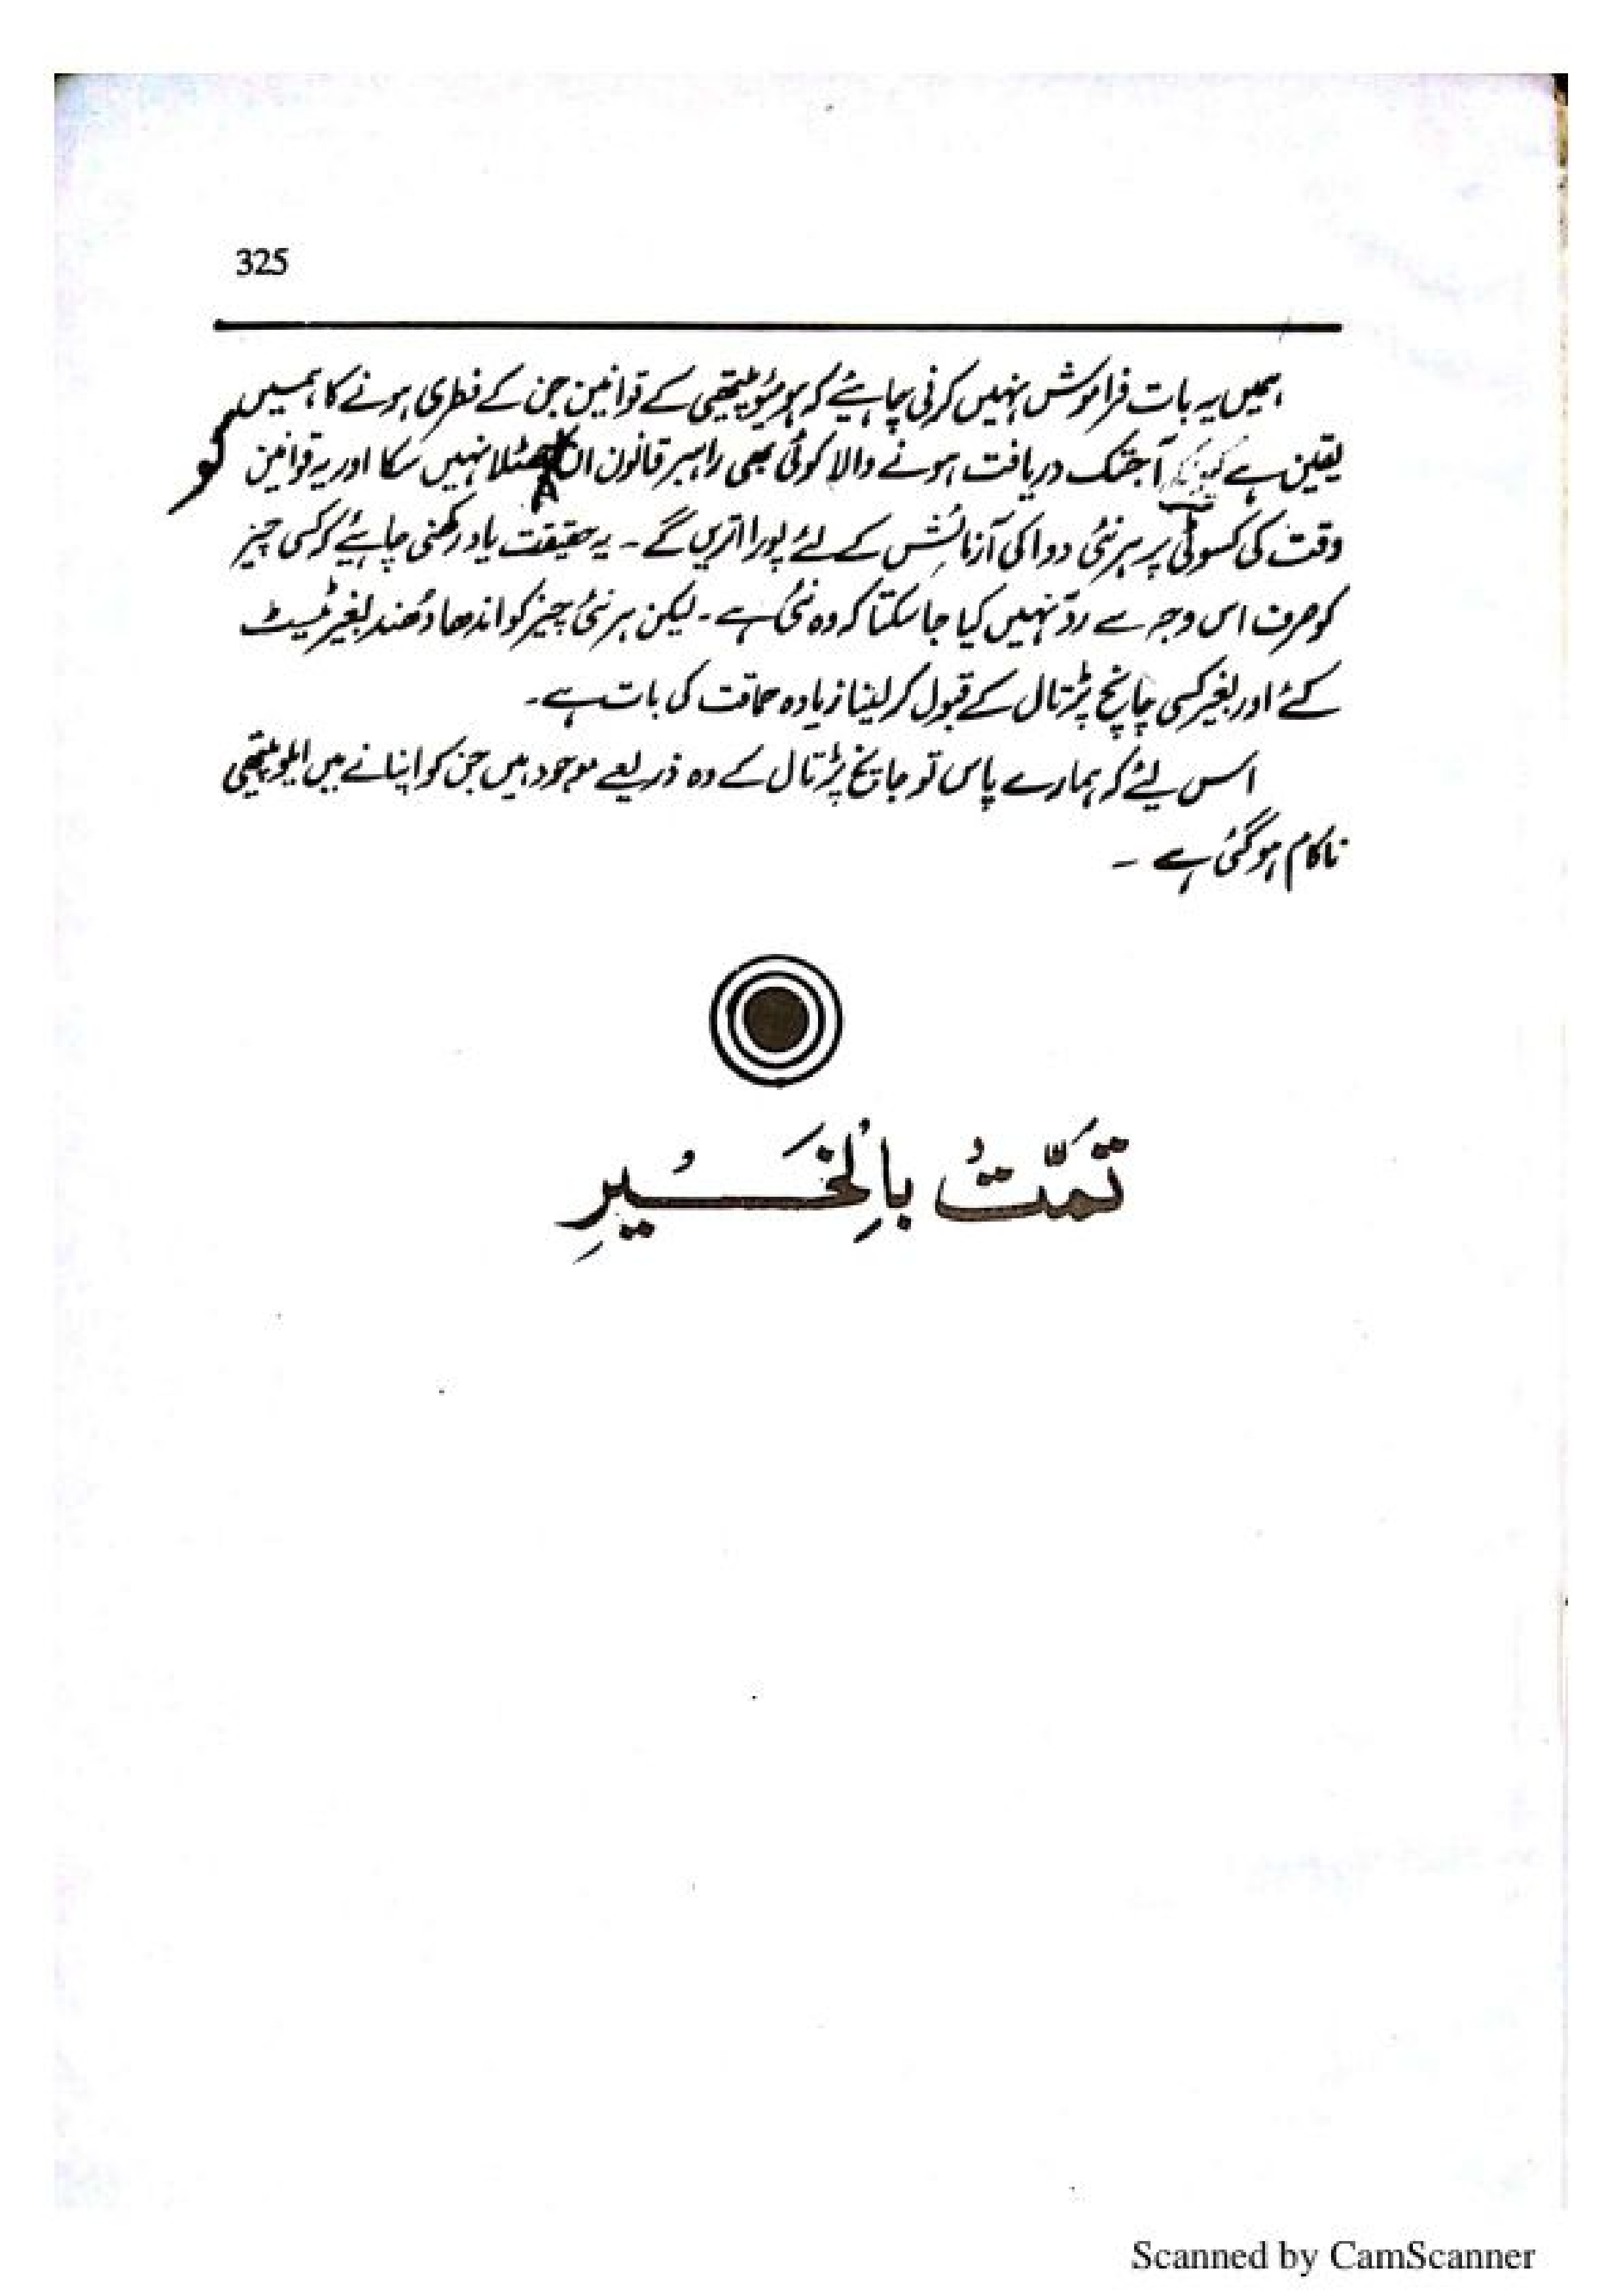 325
ہمیں یہ بات فراموش نہیں کرنی چاہیئے کہ ہومیوپیتھی کے قوانین جن کے فطری ہونے کا ہمیں
یقین ہے کیونکہ آجتک دریافت ہونے والا کوئی بھی راہبر قانون ان کو جھٹلا نہیں سکا اور یہ قوانین
وقت کی کسوٹی پر ہر نئی دوا کی آزمائش کے لئے پورا اتریں گے ۔ یہ حقیقت یاد رکھنی چاہیئے کہ کسی چیز
کو صرف اس وجہ سے ردّ نہیں کیا جا سکتا کہ وہ نئی ہے ۔ لیکن ہر نئی چیز کو اندھا دُھند بغیر ٹیسٹ
کئے اور بغیر کسی جانچ پڑتال کے قبول کر لینا زیادہ حماقت کی بات ہے ۔
اس لیئے کہ ہمارے پاس تو جانچ پڑتال کے وہ ذریعے موجود ہیں جن کو اپنانے میں ایلوپیتھی
ناکام ہو گئی ہے ۔
تَمَّتُ بِالْخَیْرِ
Scanned by CamScanner